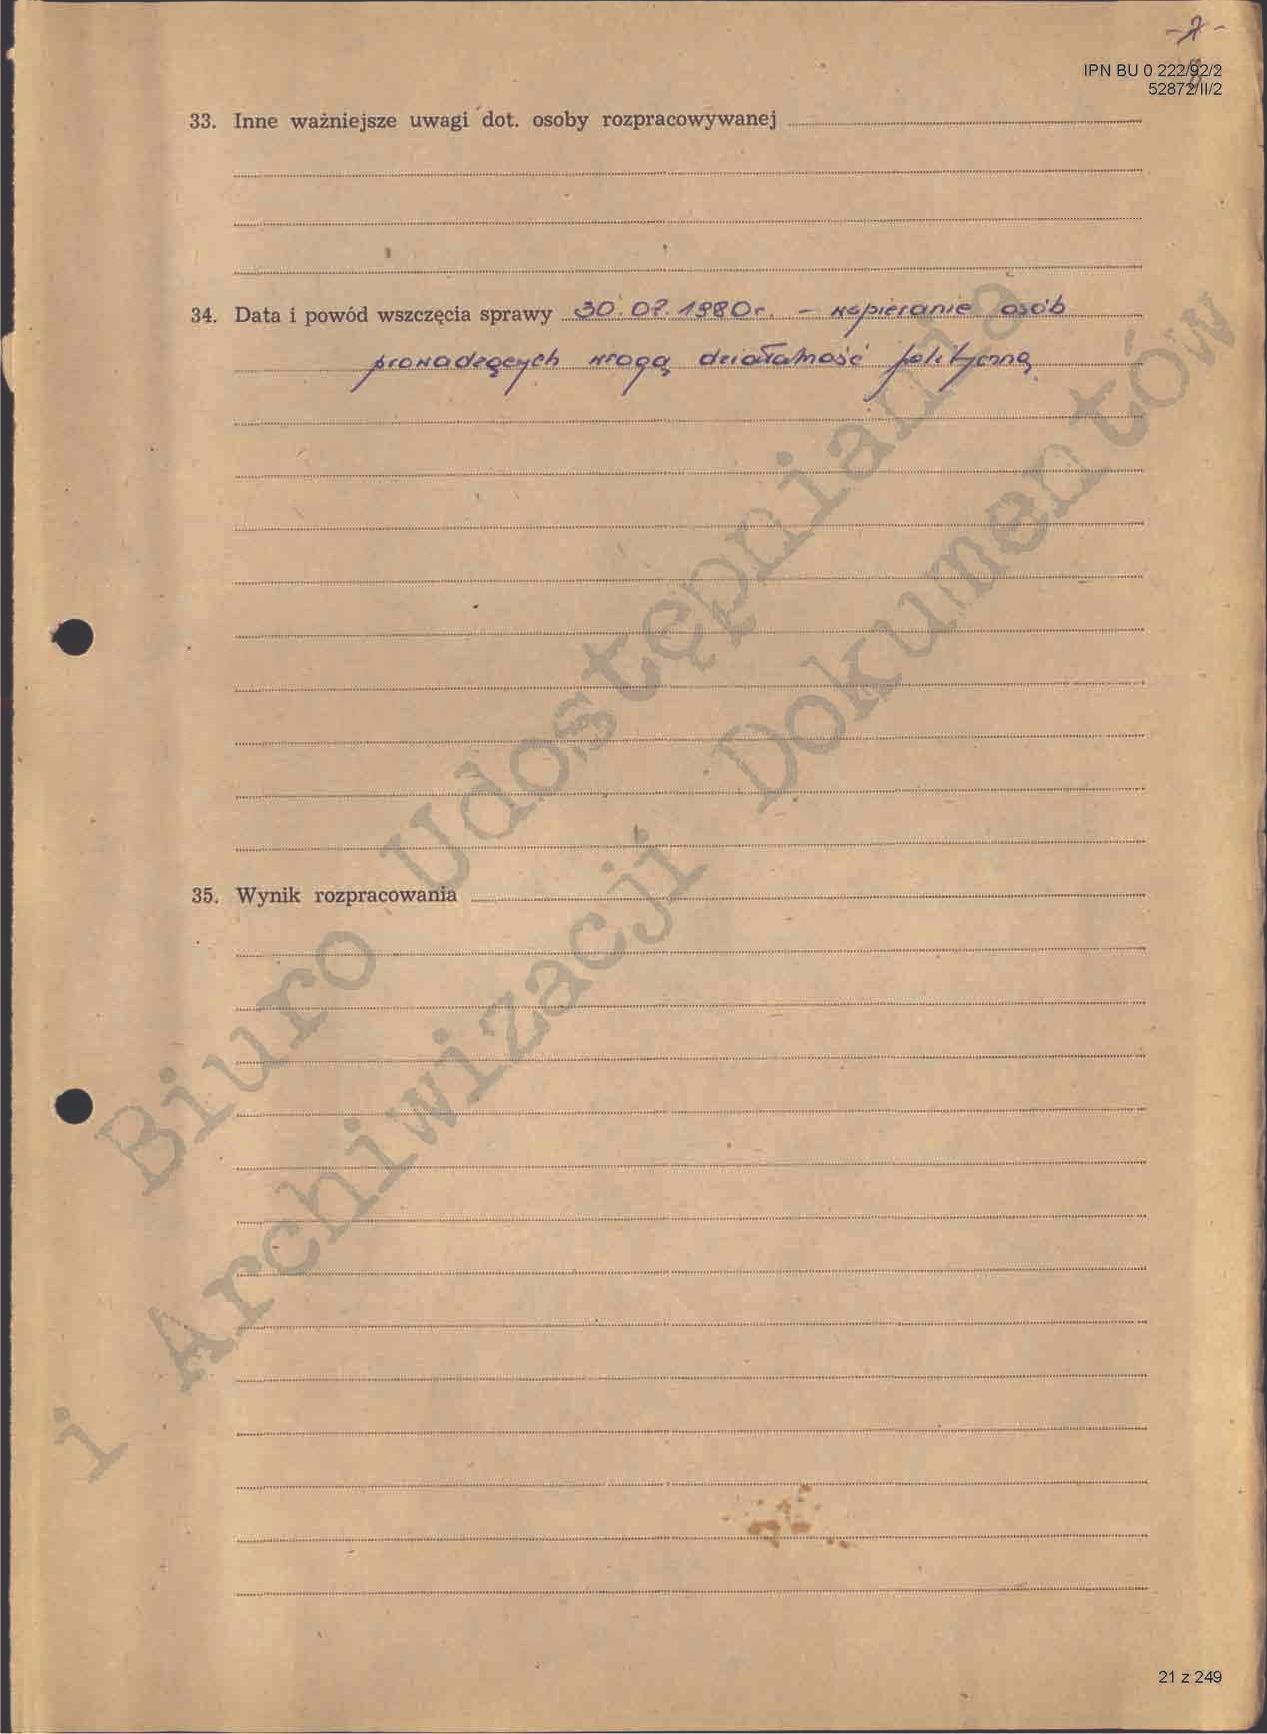 IPN BU 0 222/92/2
52872/II/2
33. Inne ważniejsze uwagi dot. osoby rozpracowywanej
34. Data i powód wszczęcia sprawy 30.07.1980r. - wspieranie osób
prowadzących wrogą działalność polityczną
35. Wynik rozpracowania
Biuro Udostępniania
i Archiwizacji Dokumentów
21 z 249